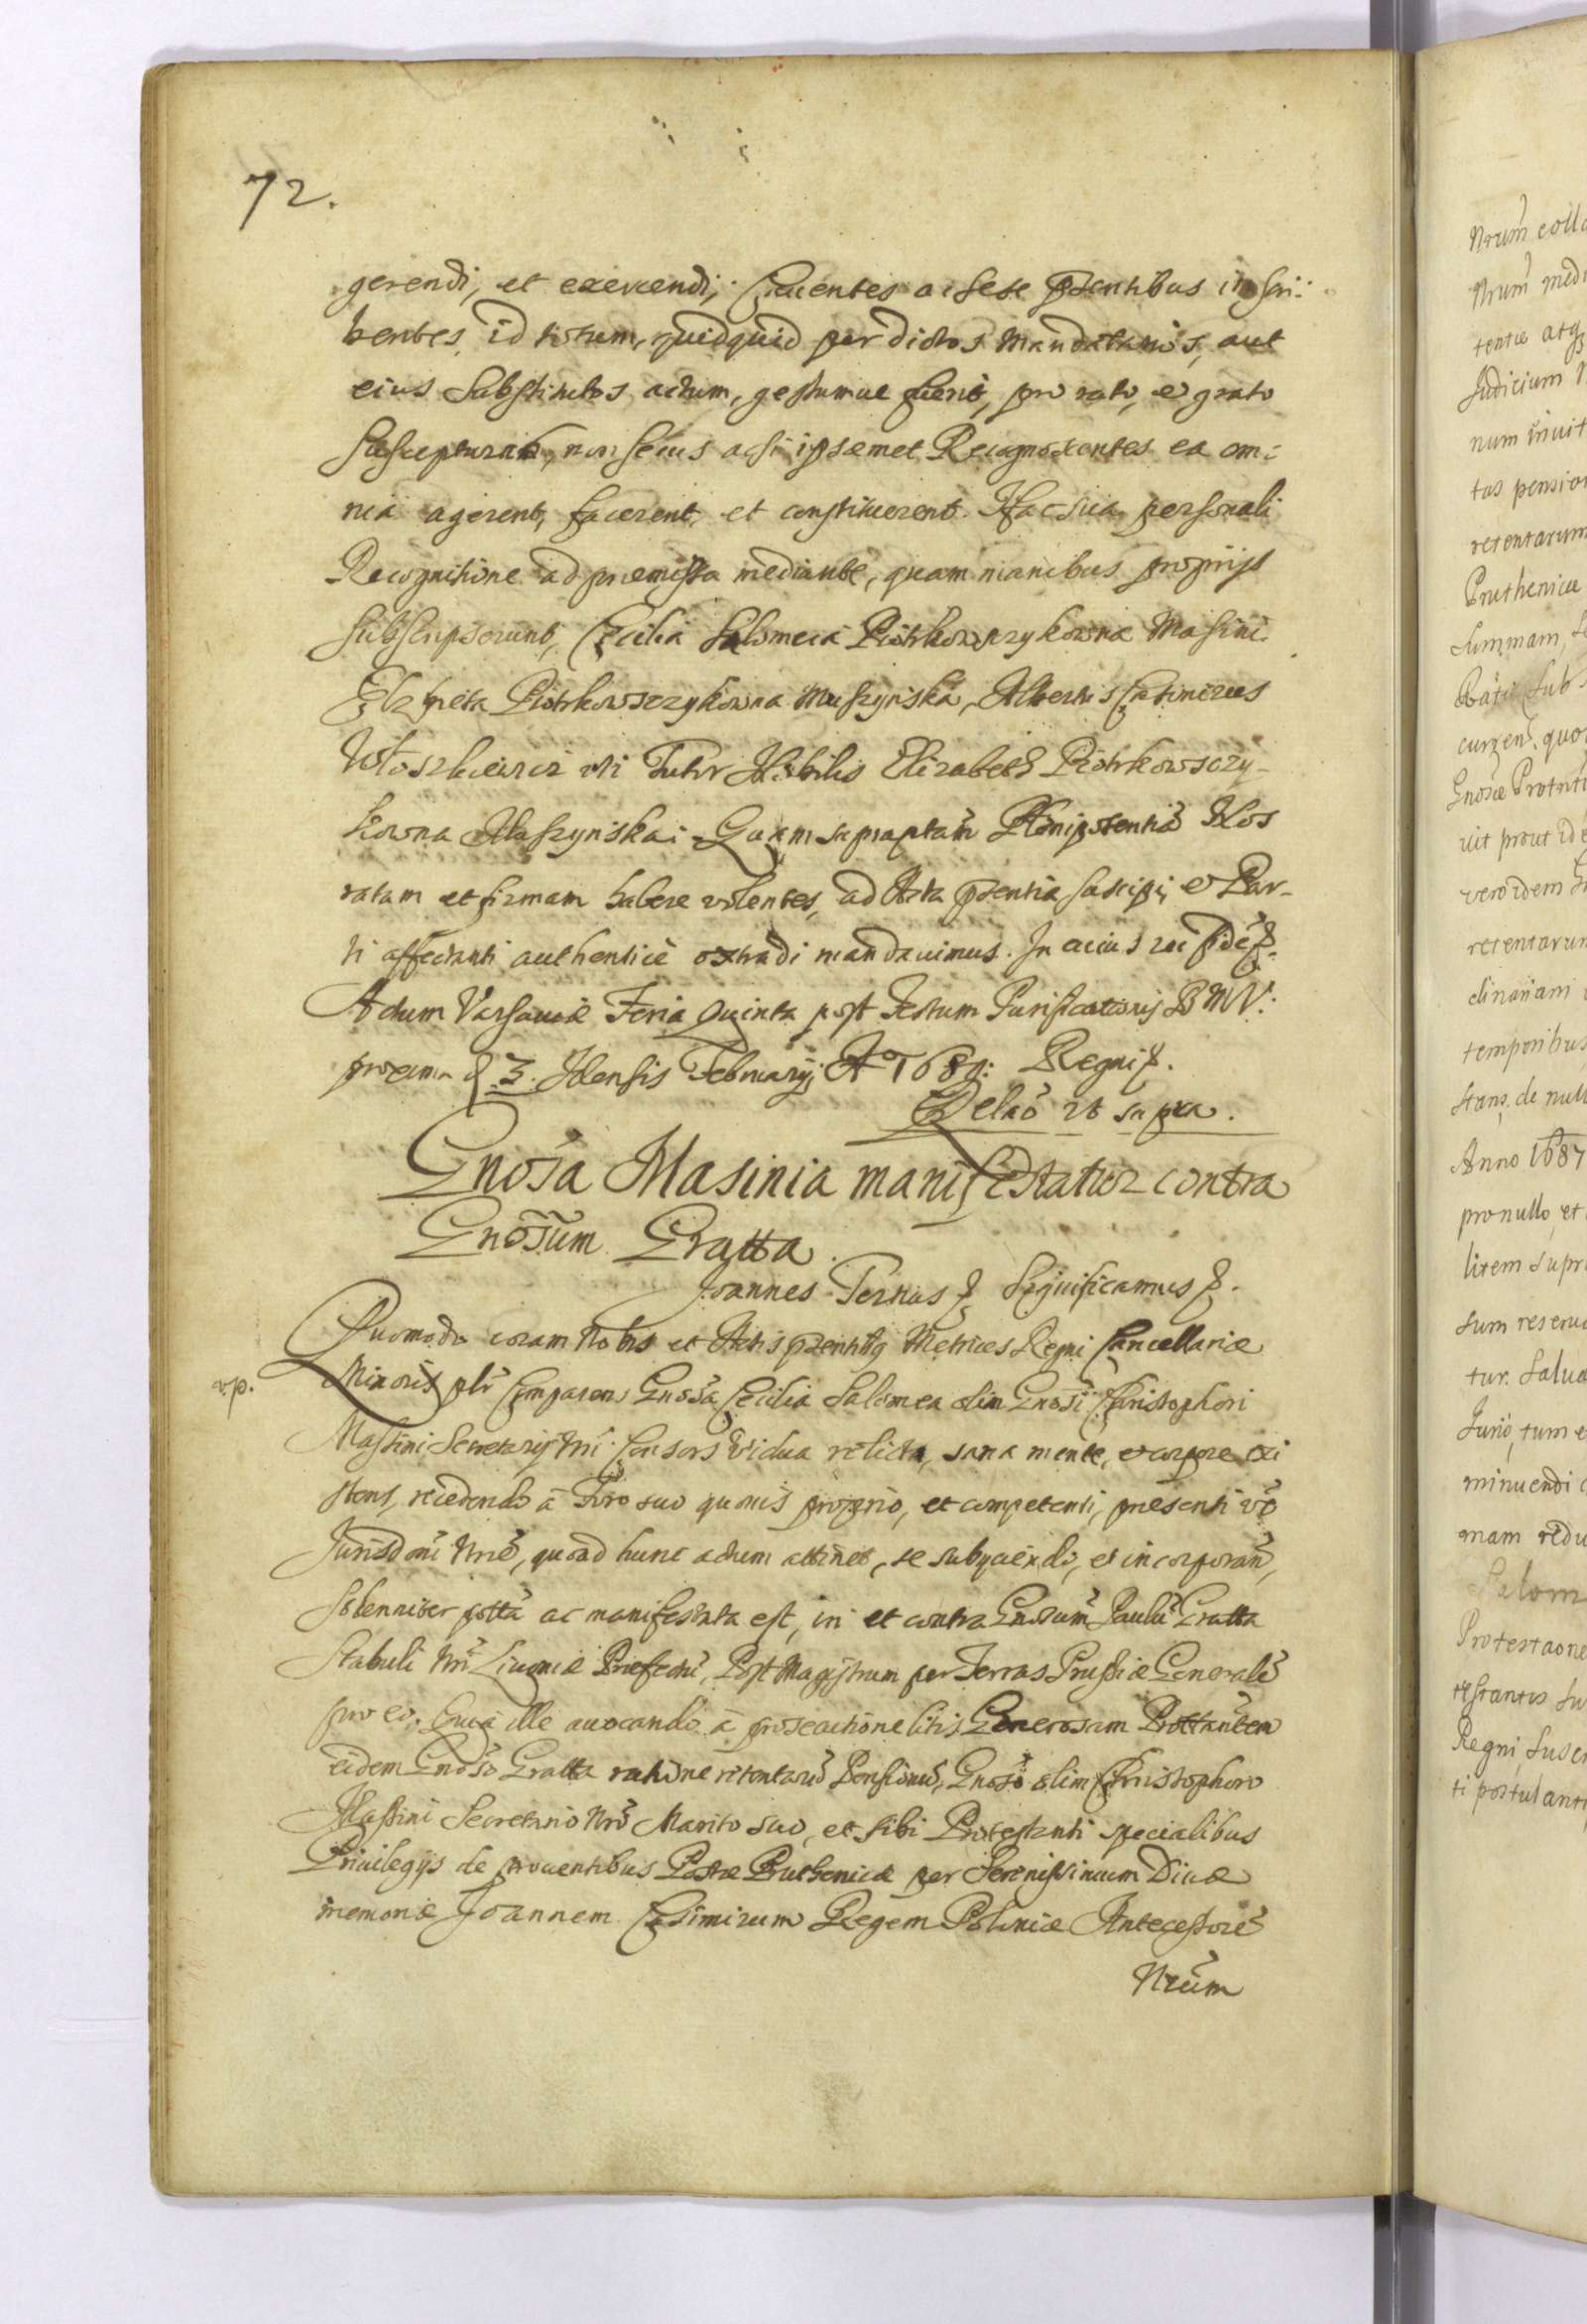 72.
gerendi, et exercendi; Cauentes ac sese pñtibus inscri:
bentes id totum, quidquid per dictos Mandatarios, aut
eius Substitutos actum, gestumue fuerit, pro rato, et grato
suscepturas, non secus acsi ipsaemet Recognoscentes ea om:
nia agerent, facerent, et constituerent. Hac sua personali
Recognitione ad praemissa mediante, quam manibus proprijs
subscripserunt, Cecilia Salomeia Piotrkowczykowna Masini.
Elzbieta Piotrkowsczykowna Muszynska, Albertus Casimirus
Wloszkiewicz uti Tutor Nobilis Elizabeth Piotrkowsczy-
kowna Muszynska: Quam supraptam Plenipotentia Nos
ratam et firmam habere volentes, ad Acta pñtia suscipi, et Par-
ti affectanti authentice extradi mandauimus. In cuius rei fidē etc.
Actum Varsauiae Feria Quinta post Festum Purificationis B M V.
proxima d. 3. Mensis Februarij Aº 1689: Regni etc.
Relaō ut supra.
Gnōsa Masinia manifestatur contra
Gnōsum Gratta
Joannes Tertius etc. Significamus etc.
Quomodo coram Nobis et Actis pñtibq Metrices Regni Cancellariae
vp.
Minoris plr Comparens Gnosa Cecilia Salomea olim Gnosi Christophori
Masini Secretarij Nri Consors Vidua relicta, sana mente, et corpore exi
stens, recedendo à Foro suo quouis proprio, et competenti, praesenti vō
Jurisdoni Nrae, quoad hunc actum attinet, se subijciendo, et incorporan,
Solenniter ptta ac manifestata est, in et contra Gnosum Paulū Gratta
Stabuli Nri Liuoniae Praefectū, Post Magistrum per Terras Prussiae Generalē
pro eo. Quia ille auocando à prosecutione litis Generosam Prottantem
eidem Gnoso Gratta ratione retentarū Pensionū, Gnoso olim Christophoro
Massini Secretario Nro Marito suo, et sibi Protestanti specialibus
Priuilegijs de prouentibus Postae Pruthenicae per Serenissimum Diuae
memoriae Joannem Casimirum Regem Poloniae Antecessorē
Nrūm
Nrum colla
Nrum medi
tentiae atq
Judicium N
num inuit
tas pension
retentarum
Pruthenicae
Summam,
Rati sub
curren, quo
Gnosae Prottnti
uit prout ide
vero idem G
retentarum
clinariam
temporibus
stans, de null
Anno 1687
pro nullo, et
litem supr
sum reserua
tur. Salua
Jurio, tum e
minuendi
mam redu
Salom
Protestaone
testantis su
Regni, susce
ti postulanti